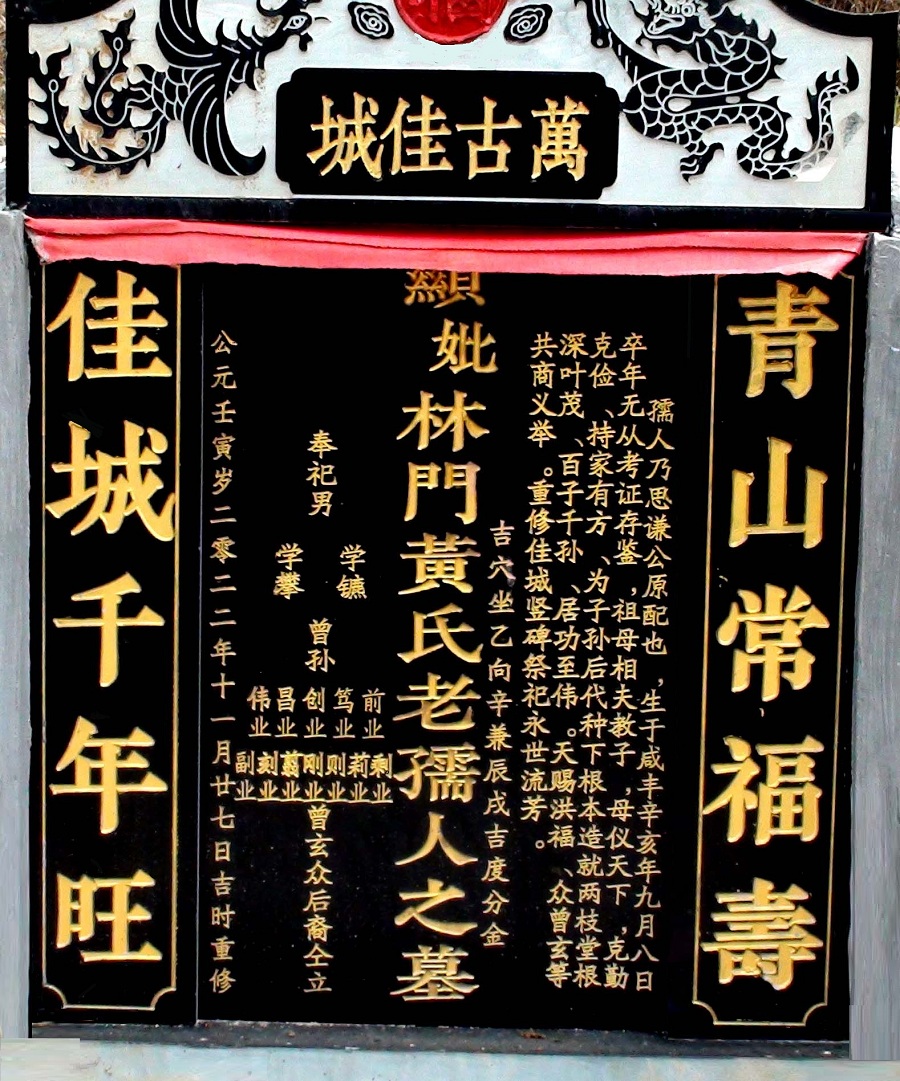 萬古佳城
青山常福壽
孺人乃思谦公原配也，生于咸丰辛亥年九月八日
卒年无从考证存鉴，祖母相夫教子，母仪天下，克勤
克俭、持家有方、为子孙后代种下根本造就两枝堂根
深叶茂、百子千孙、居功至伟。天赐洪福、众曾玄等
共商义举。重修佳城竖碑祭祀永世流芳。
吉穴坐乙向辛兼辰戌吉度分金
顯妣林門黃氏老孺人之墓
奉祀男
学镳
学攀
曾孙
前业
笃业
创业
昌业
伟业
剩业
莉业
则业
刚业
刻业
副业
曾玄众后裔仝立
公元壬寅岁二零二二年十一月廿七日吉时重修
佳城千年旺